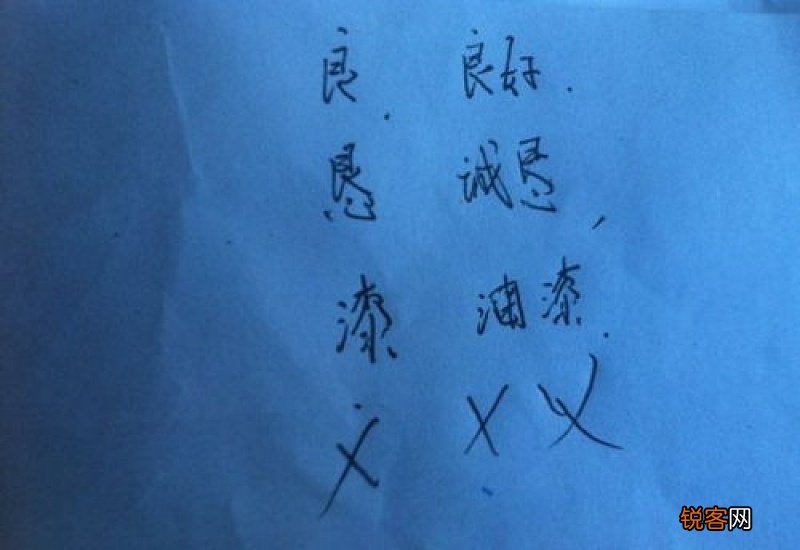 良. 良好.
恳 诚恳,
漆 油漆.
义 X 义
锐客网